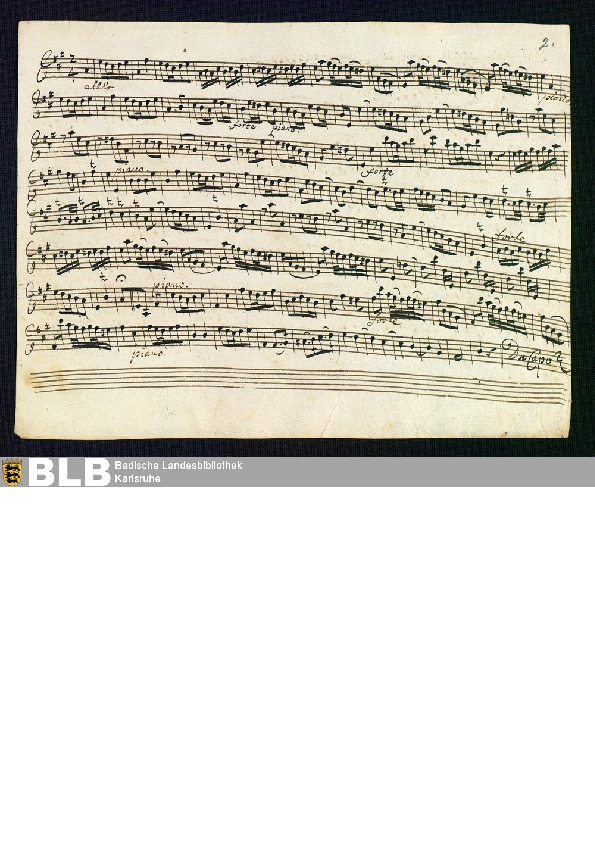 2.
allo
piano
forte piano
piano
forte
t
t t t
t t t t t
t
t
t
piano.
forte
piano
Da Capo
BLB Badische Landesbibliothek
Karlsruhe